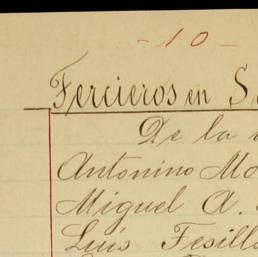 - 10 -
Fercieros en S
De la
Antonino Mo
Miguel A.
Luis Fesill